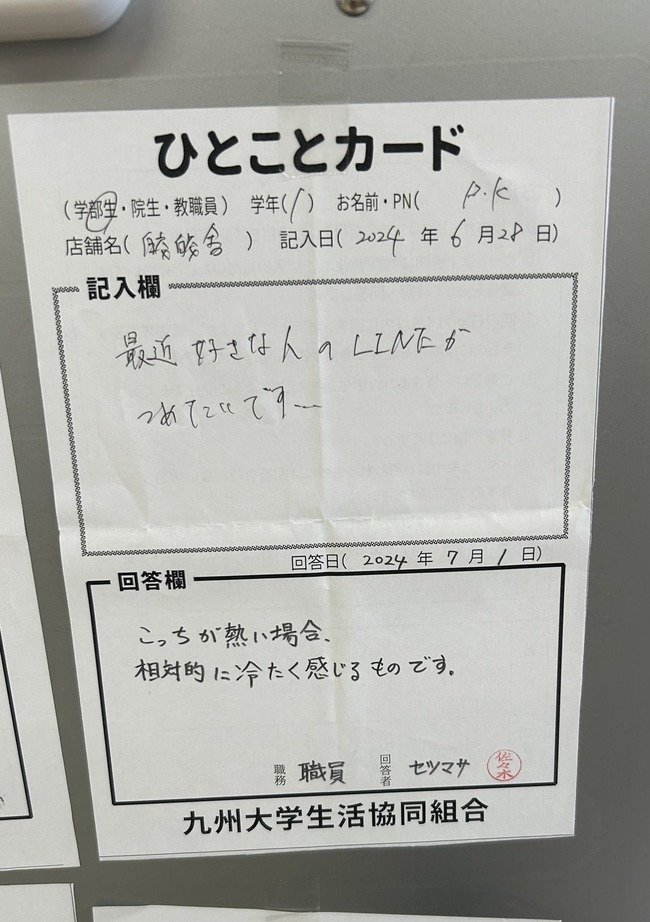 ひとことカード
(学部生・院生・教職員) 学年(1) お名前・PN( P.K )
店舗名( ) 記入日( 2024 年 6 月 28 日)
記入欄
最近 好きな人の LINEが
つめたいです...
回答日( 2024 年 7 月 1 日)
回答欄
こっちが熱い場合、
相対的に冷たく感じるものです。
職務 職員 回答者 セツマサ 佐々木
九州大学生活協同組合